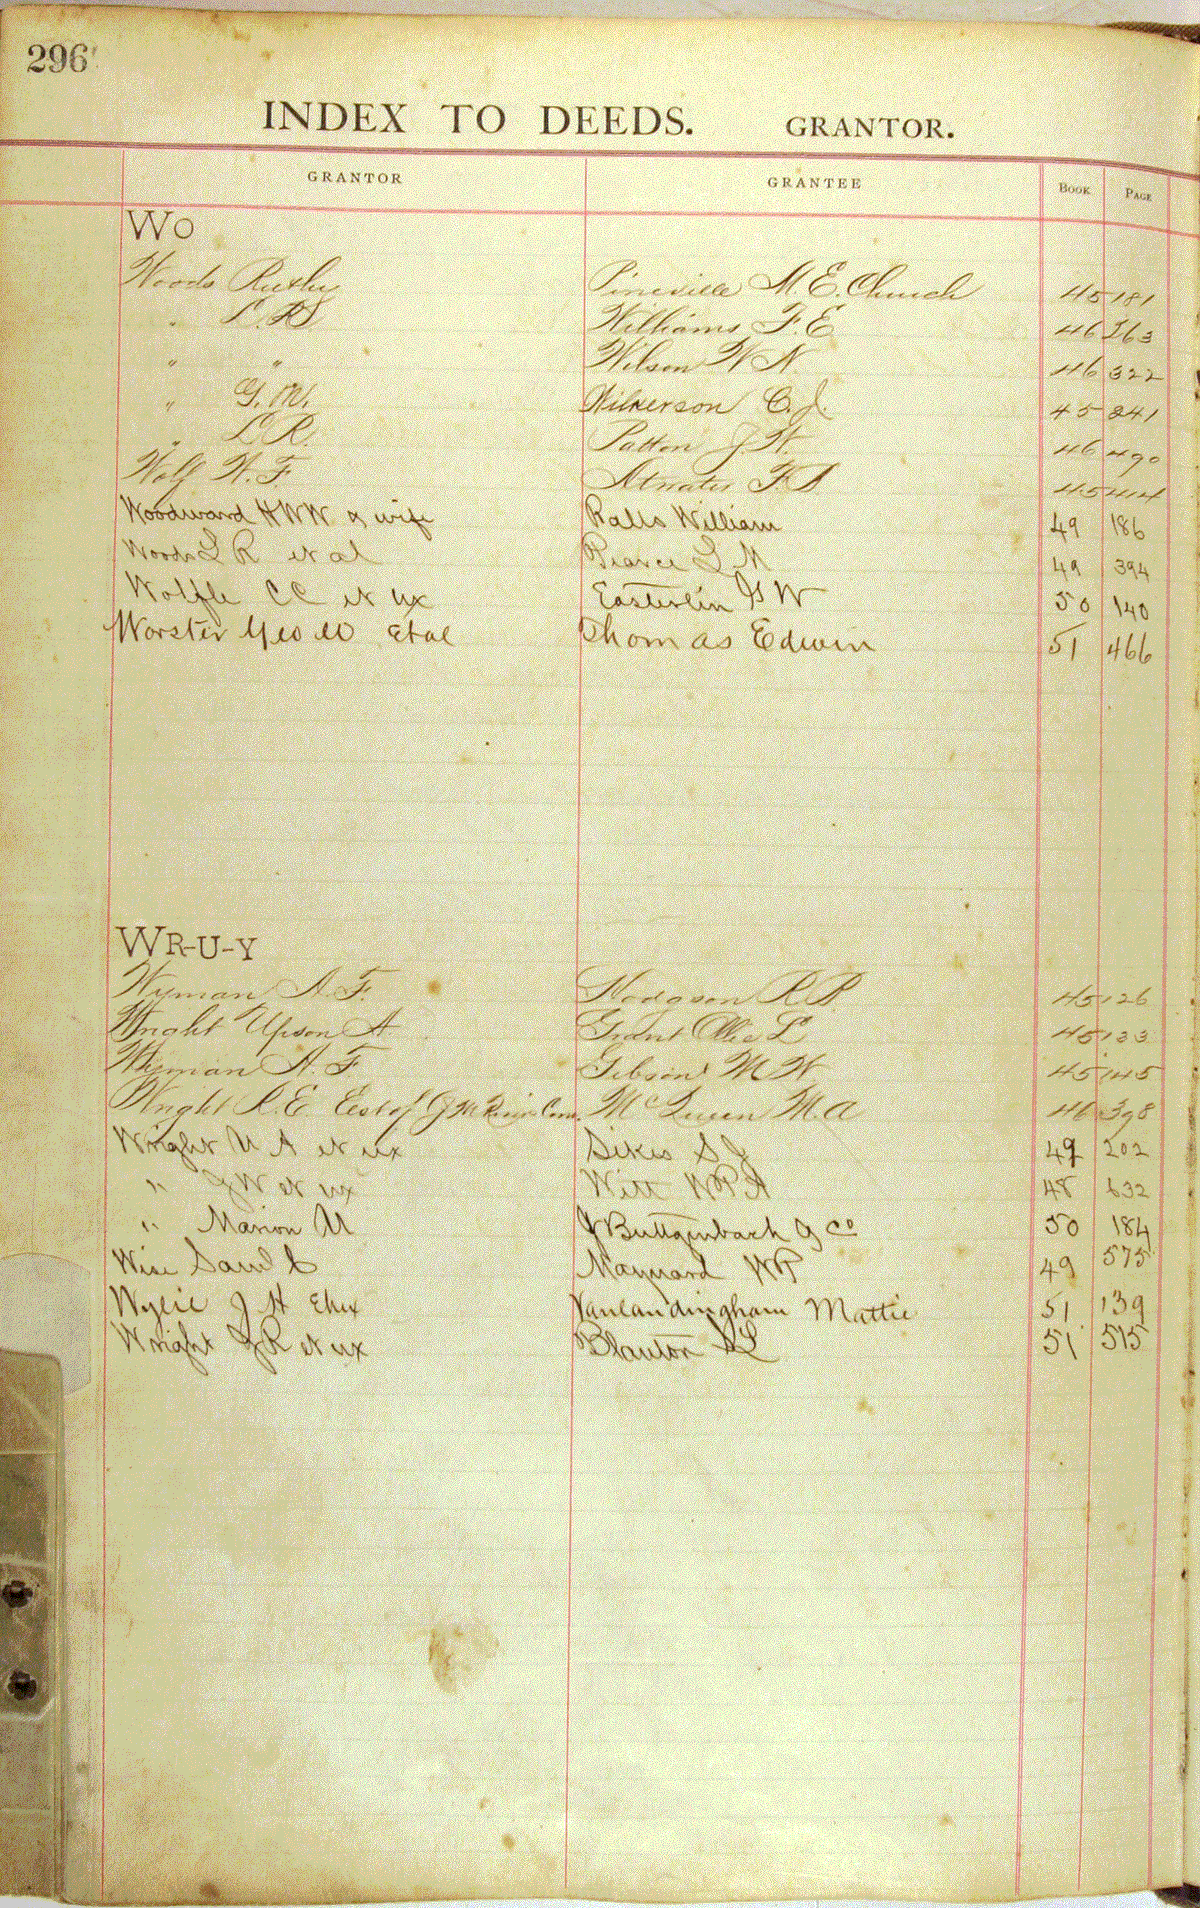 296
INDEX TO DEEDS. GRANTOR.
GRANTOR GRANTEE BOOK PAGE
WO
Woods Pineville M E. Church 45 181
" L. R. Williams F. E 46 263
" " Wilson W N. 46 322
" G. M. Wilkerson C. J. 45 241
" L R. Patton J. W. 46 490
Wolf W. F Atwater F. A. 45 414
Woodward H W W & wife Ralls William 49 186
Woods L R et al Pearce L M 49 394
Wolfle C C et ux Easterlin G W 50 140
Worster Geo W et al Thomas Edwin 51 466
WR-U-Y
Wyman A. F. Hodgson R. R 45 126
Wright Upson A Grant Ollie L 45 133
Wyman A. F Gibson M W 45 145
Wright R. E Est of J M Com. Mc Queen M. A 46 398
Wright U A et ux Sikes S J 49 202
" J W et ux Witt W P A 48 632
" Marion U J Buttgenbach & Co 50 184
Wise Saml C Maynard W P 49 575
Wylie J H Et ux Vanlandingham Mattie 51 139
Wright J R et ux Blanton A L 51 515